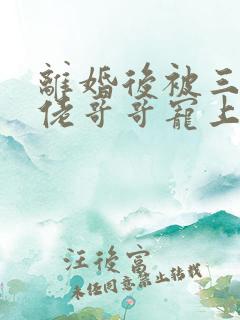 離婚後被三
佬哥哥寵上
汪後富
未經同意禁止轉載